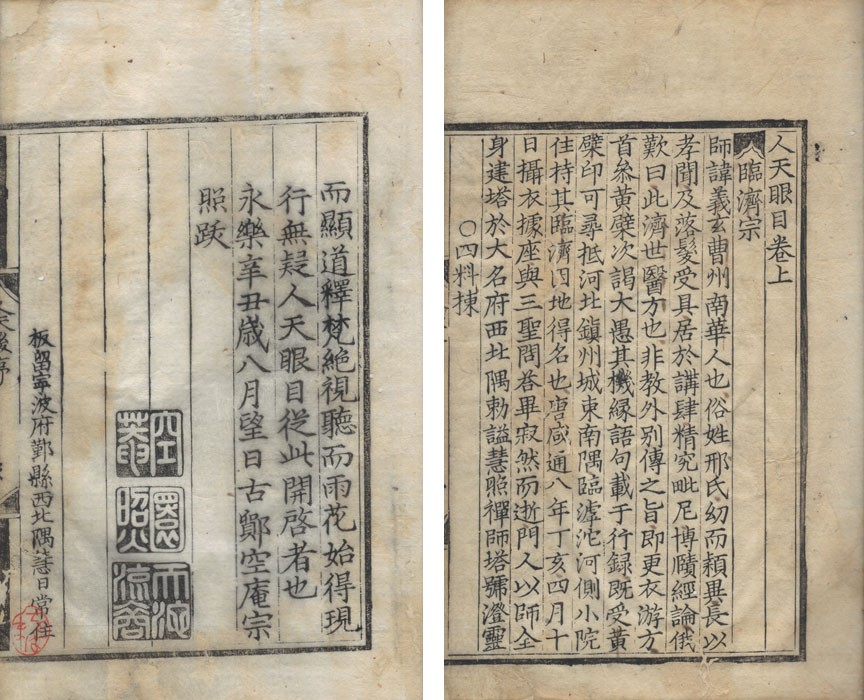 人天眼目卷上
臨濟宗
師諱義玄曹州南華人也俗姓邢氏幼而穎異長以
孝聞及落髮受具居於講肆精究毗尼博賾經論俄
歎曰此濟世醫方也非教外別傳之旨即更衣游方
首叅黃檗次謁大愚其機緣語句載于行録既受黃
檗印可尋抵河北鎮州城東南隅臨滹沱河側小院
住持其臨濟因地得名也唐咸通八年丁亥四月十
日攝衣據座與三聖問荅畢寂然而逝門人以師全
身建塔於大名府西北隅勅謚慧照禪師塔號澄靈
○四料揀
而顯道釋梵絶視聽而雨花始得現
行無疑人天眼目從此開啓者也
永樂辛丑歲八月望日古鄮空庵宗
照跋
板留寧波府鄞縣西北隅慧日常住